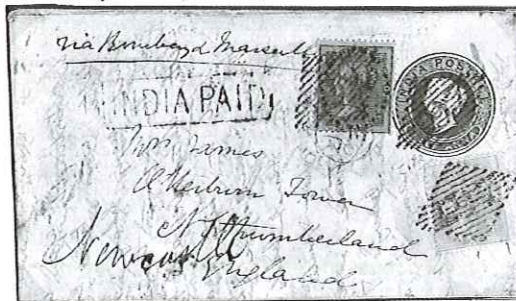 via Bombay & Marseilles
INDIA PAID
INDIA POSTAGE
Mrs. James
Otterburn Tower
Northumberland
Newcastle
England